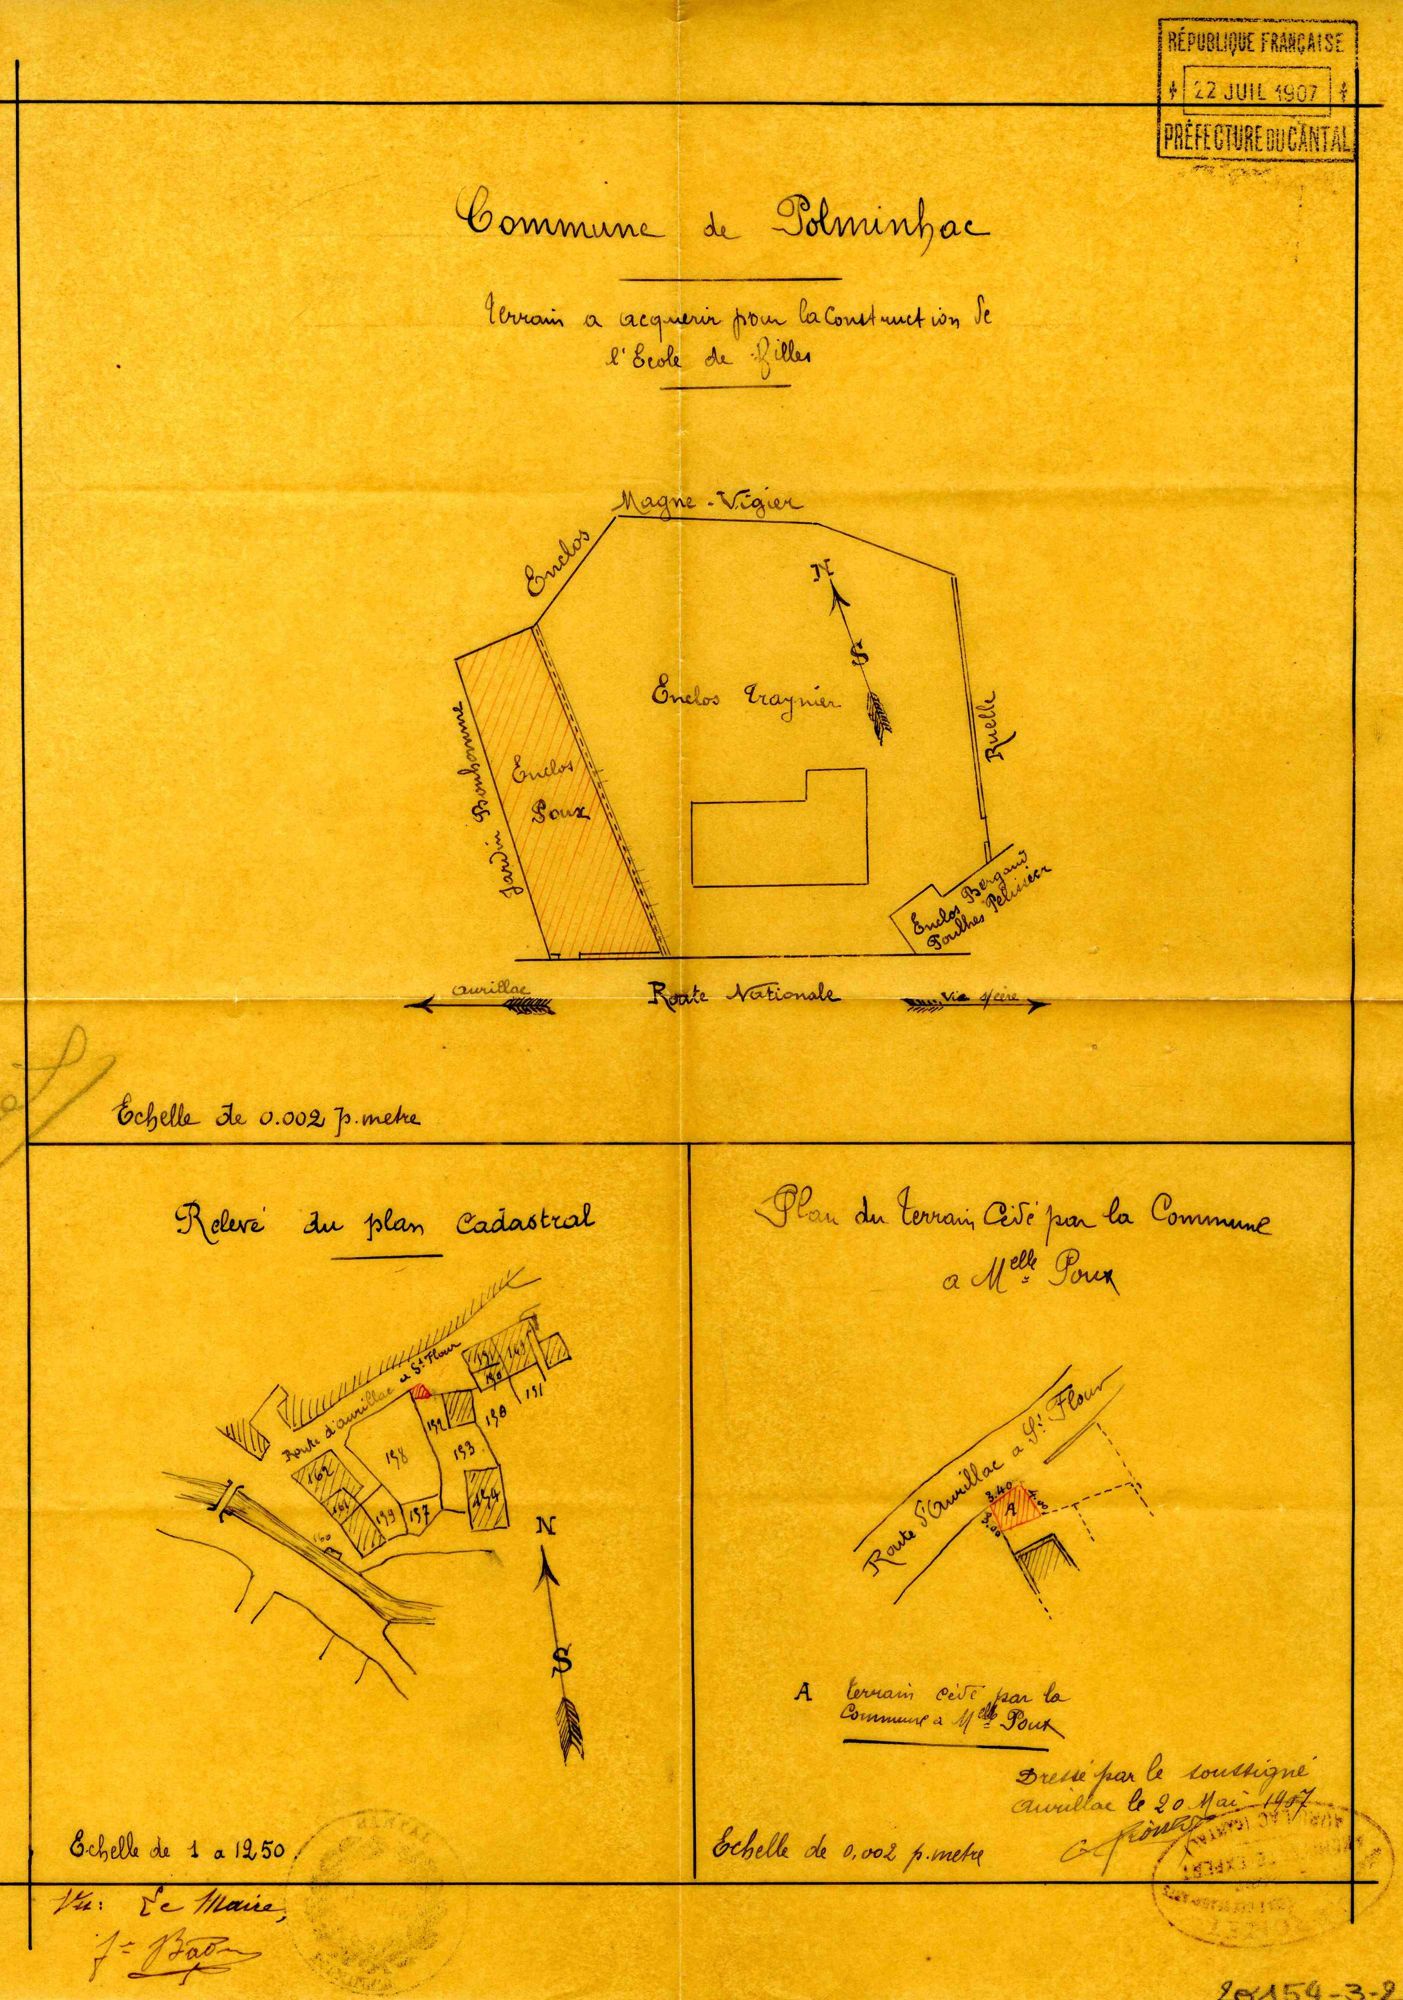 RÉPUBLIQUE FRANÇAISE
22 JUIL 1907
PRÉFECTURE DU CANTAL
Commune de Polminhac
Terrain a acquerir pour la Construction de
l'Ecole de filles
Magne-Vigier
Enclos
N
S
Enclos Traynier
Ruelle
Jardin Bonhomme
Enclos
Poux
Enclos Bergaud
Poulhes Pelissier
aurillac
Route Nationale
Vic s/cère
Echelle de 0.002 p. metre
Relevé du plan cadastral
Route d'aurillac a St Flour
191
149
190
151
192
150
198
193
162
161
199
197
194
160
N
S
Echelle de 1 a 1250
Plan du Terrain Cédé par la Commune
a Melle Poux
Route d'Aurillac a St Flour
3.40
A
3.00
A terrain cédé par la
Commune a Melle Poux
Dressé par le soussigné
aurillac le 20 Mai 1907
Echelle de 0,002 p. metre
Vu: Le Maire,